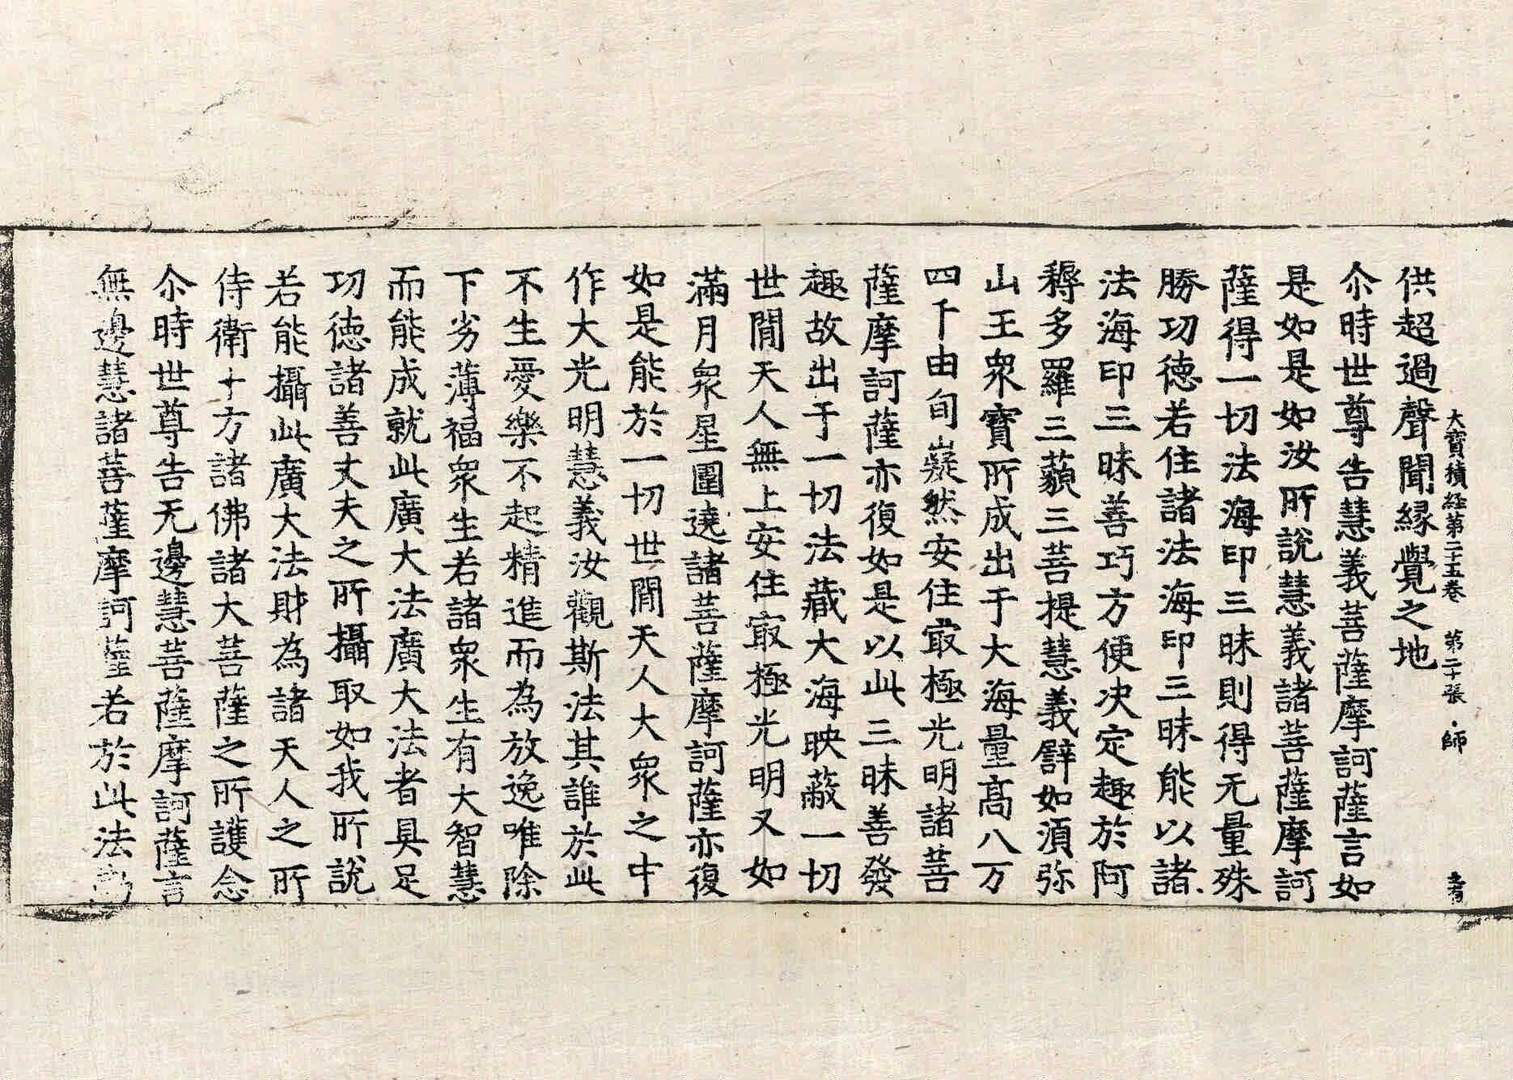 大寶積經第二十五卷 第二十張 師
供超過聲聞緣覺之地
尒時世尊告慧義菩薩摩訶薩言如
是如是如汝所說慧義諸菩薩摩訶
薩得一切法海印三昧則得无量殊
勝功德若住諸法海印三昧能以諸
法海印三昧善巧方便決定趣於阿
耨多羅三藐三菩提慧義譬如須弥
山王衆寶所成出于大海量高八万
四千由旬嶷然安住㝡極光明諸菩
薩摩訶薩亦復如是以此三昧善發
趣故出于一切法藏大海映蔽一切
世閒天人無上安住㝡極光明又如
滿月衆星圍遶諸菩薩摩訶薩亦復
如是能於一切世閒天人大衆之中
作大光明慧義汝觀斯法其誰於此
不生愛樂不起精進而為放逸唯除
下劣薄福衆生若諸衆生有大智慧
而能成就此廣大法廣大法者具足
功德諸善丈夫之所攝取如我所說
若能攝此廣大法財為諸天人之所
侍衛十方諸佛諸大菩薩之所護念
尒時世尊告无邊慧菩薩摩訶薩言
無邊慧諸菩薩摩訶薩若於此法